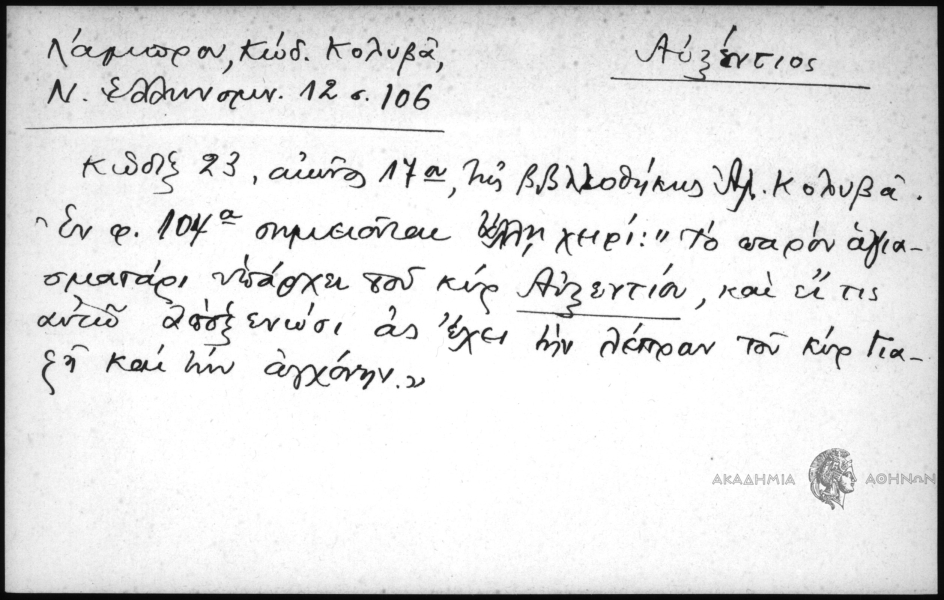 Λάμπρου, Κώδ. Κολυβᾶ,
Ν. Ἑλληνομν. 12 σ. 106
Αὐξέντιος
Κῶδιξ 23, αἰῶνος 17ου, τῆς βιβλιοθήκης Ἀλ. Κολυβᾶ.
Ἐν φ. 104α σημειοῦται ἄλλῃ χειρί: "τὸ παρὸν ἁγια-
σματάρι ὑπάρχει τοῦ κὺρ Αὐξεντίου, καὶ εἴ τις
αὐτῶ ἀποξενώσι ἀς ἔχει τὴν λέπραν τοῦ κὺρ Για-
ξῆ καὶ τὴν ἀγχόνην."
ΑΚΑΔΗΜΙΑ ΑΘΗΝΩΝ